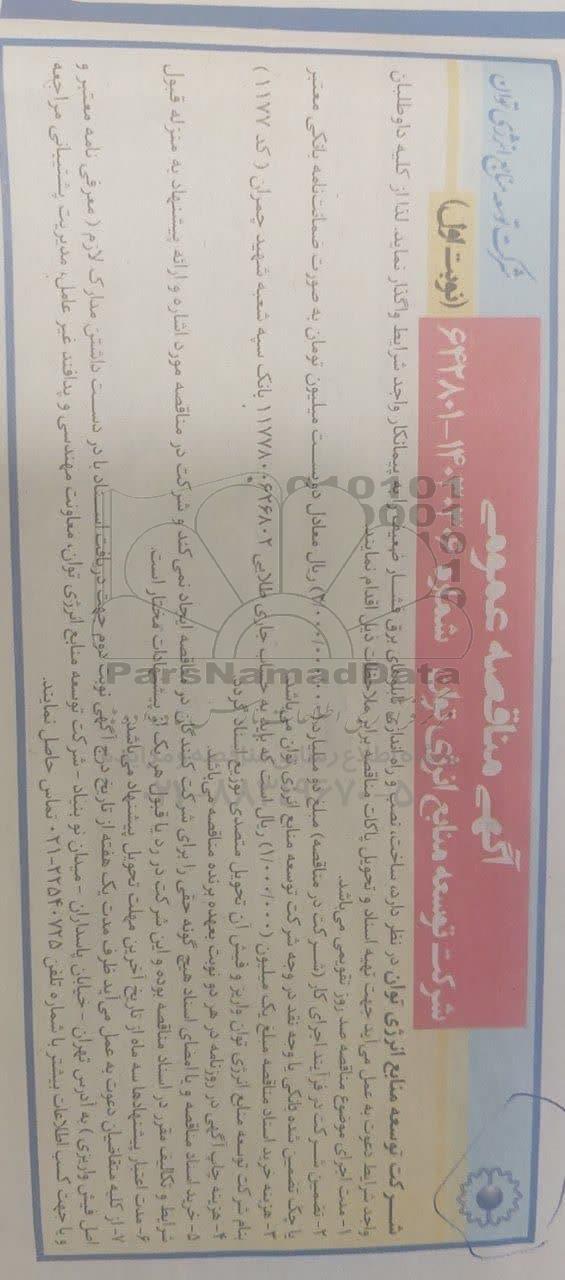 شرکت توسعه منابع انرژی توان
آگهی مناقصه عمومی
شرکت توسعه منابع انرژی توان شماره
(نوبت اول)
شرکت توسعه منابع انرژی توان در نظر دارد، ساخت، نصب و راه اندازی تابلوهای برق فشار ضعیف را به پیمانکار واجد شرایط واگذار نماید. لذا از کلیه داوطلبان
واجد شرایط دعوت به عمل می آید جهت تهیه اسناد و تحویل پاکات مناقصه برابر ملاحظات ذیل اقدام نمایند.
۱- مدت اجرای موضوع مناقصه صد روز تقویمی می‌باشد.
۲- تضمین شرکت در فرآیند اجرای کار (شرکت در مناقصه) مبلغ دو میلیارد ریال معادل دویست میلیون تومان به صورت ضمانت‌نامه بانکی معتبر
یا چک تضمین شده بانکی یا وجه نقد در وجه شرکت توسعه منابع انرژی توان می‌باشد.
۳- هزینه خرید اسناد مناقصه مبلغ یک میلیون (۱/۰۰۰/۰۰۰) ریال است که باید به حساب جاری طلایی ۱۱۷۷۸۰۰۶۲۶۸۰۲ بانک سپه شعبه شهید چمران ( کد ۱۱۷۷ )
بنام شرکت توسعه منابع انرژی توان واریز و فیش آن تحویل متصدی توزیع اسناد گردد.
۴- هزینه چاپ آگهی در روزنامه در هر دو نوبت بعهده برنده مناقصه می‌باشد.
۵- خرید اسناد مناقصه و یا امضای اسناد هیچ گونه حقی را برای شرکت کنندگان در مناقصه ایجاد نمی کند و شرکت در مناقصه مورد اشاره و ارائه پیشنهاد به منزله قبول
شرایط و تکالیف مقرر در اسناد مناقصه بوده و این شرکت در رد یا قبول هر یک از پیشنهادات مختار است.
۶- مدت اعتبار پیشنهادها سه ماه از تاریخ آخرین مهلت تحویل پیشنهاد می‌باشد.
۷- از کلیه متقاضیان دعوت به عمل می آید ظرف مدت یک هفته از تاریخ درج آگهی نوبت دوم جهت دریافت اسناد با در دست داشتن مدارک لازم ( معرفی نامه معتبر و
اصل فیش واریزی ) به آدرس تهران - خیابان پاسداران - میدان نو بنیاد - شرکت توسعه منابع انرژی توان، معاونت مهندسی و پدافند غیر عامل، مدیریت پشتیبانی مراجعه
و یا جهت کسب اطلاعات بیشتر با شماره تلفن ۲۲۵۴۰۷۲۵-۰۲۱ تماس حاصل نمایند.
ParsNamadData